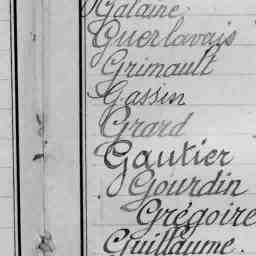 Galaine.
Guerlavais
Grimault
Gassin
Grard
Gautier
Gourdin
Grégoire
Guillaume.